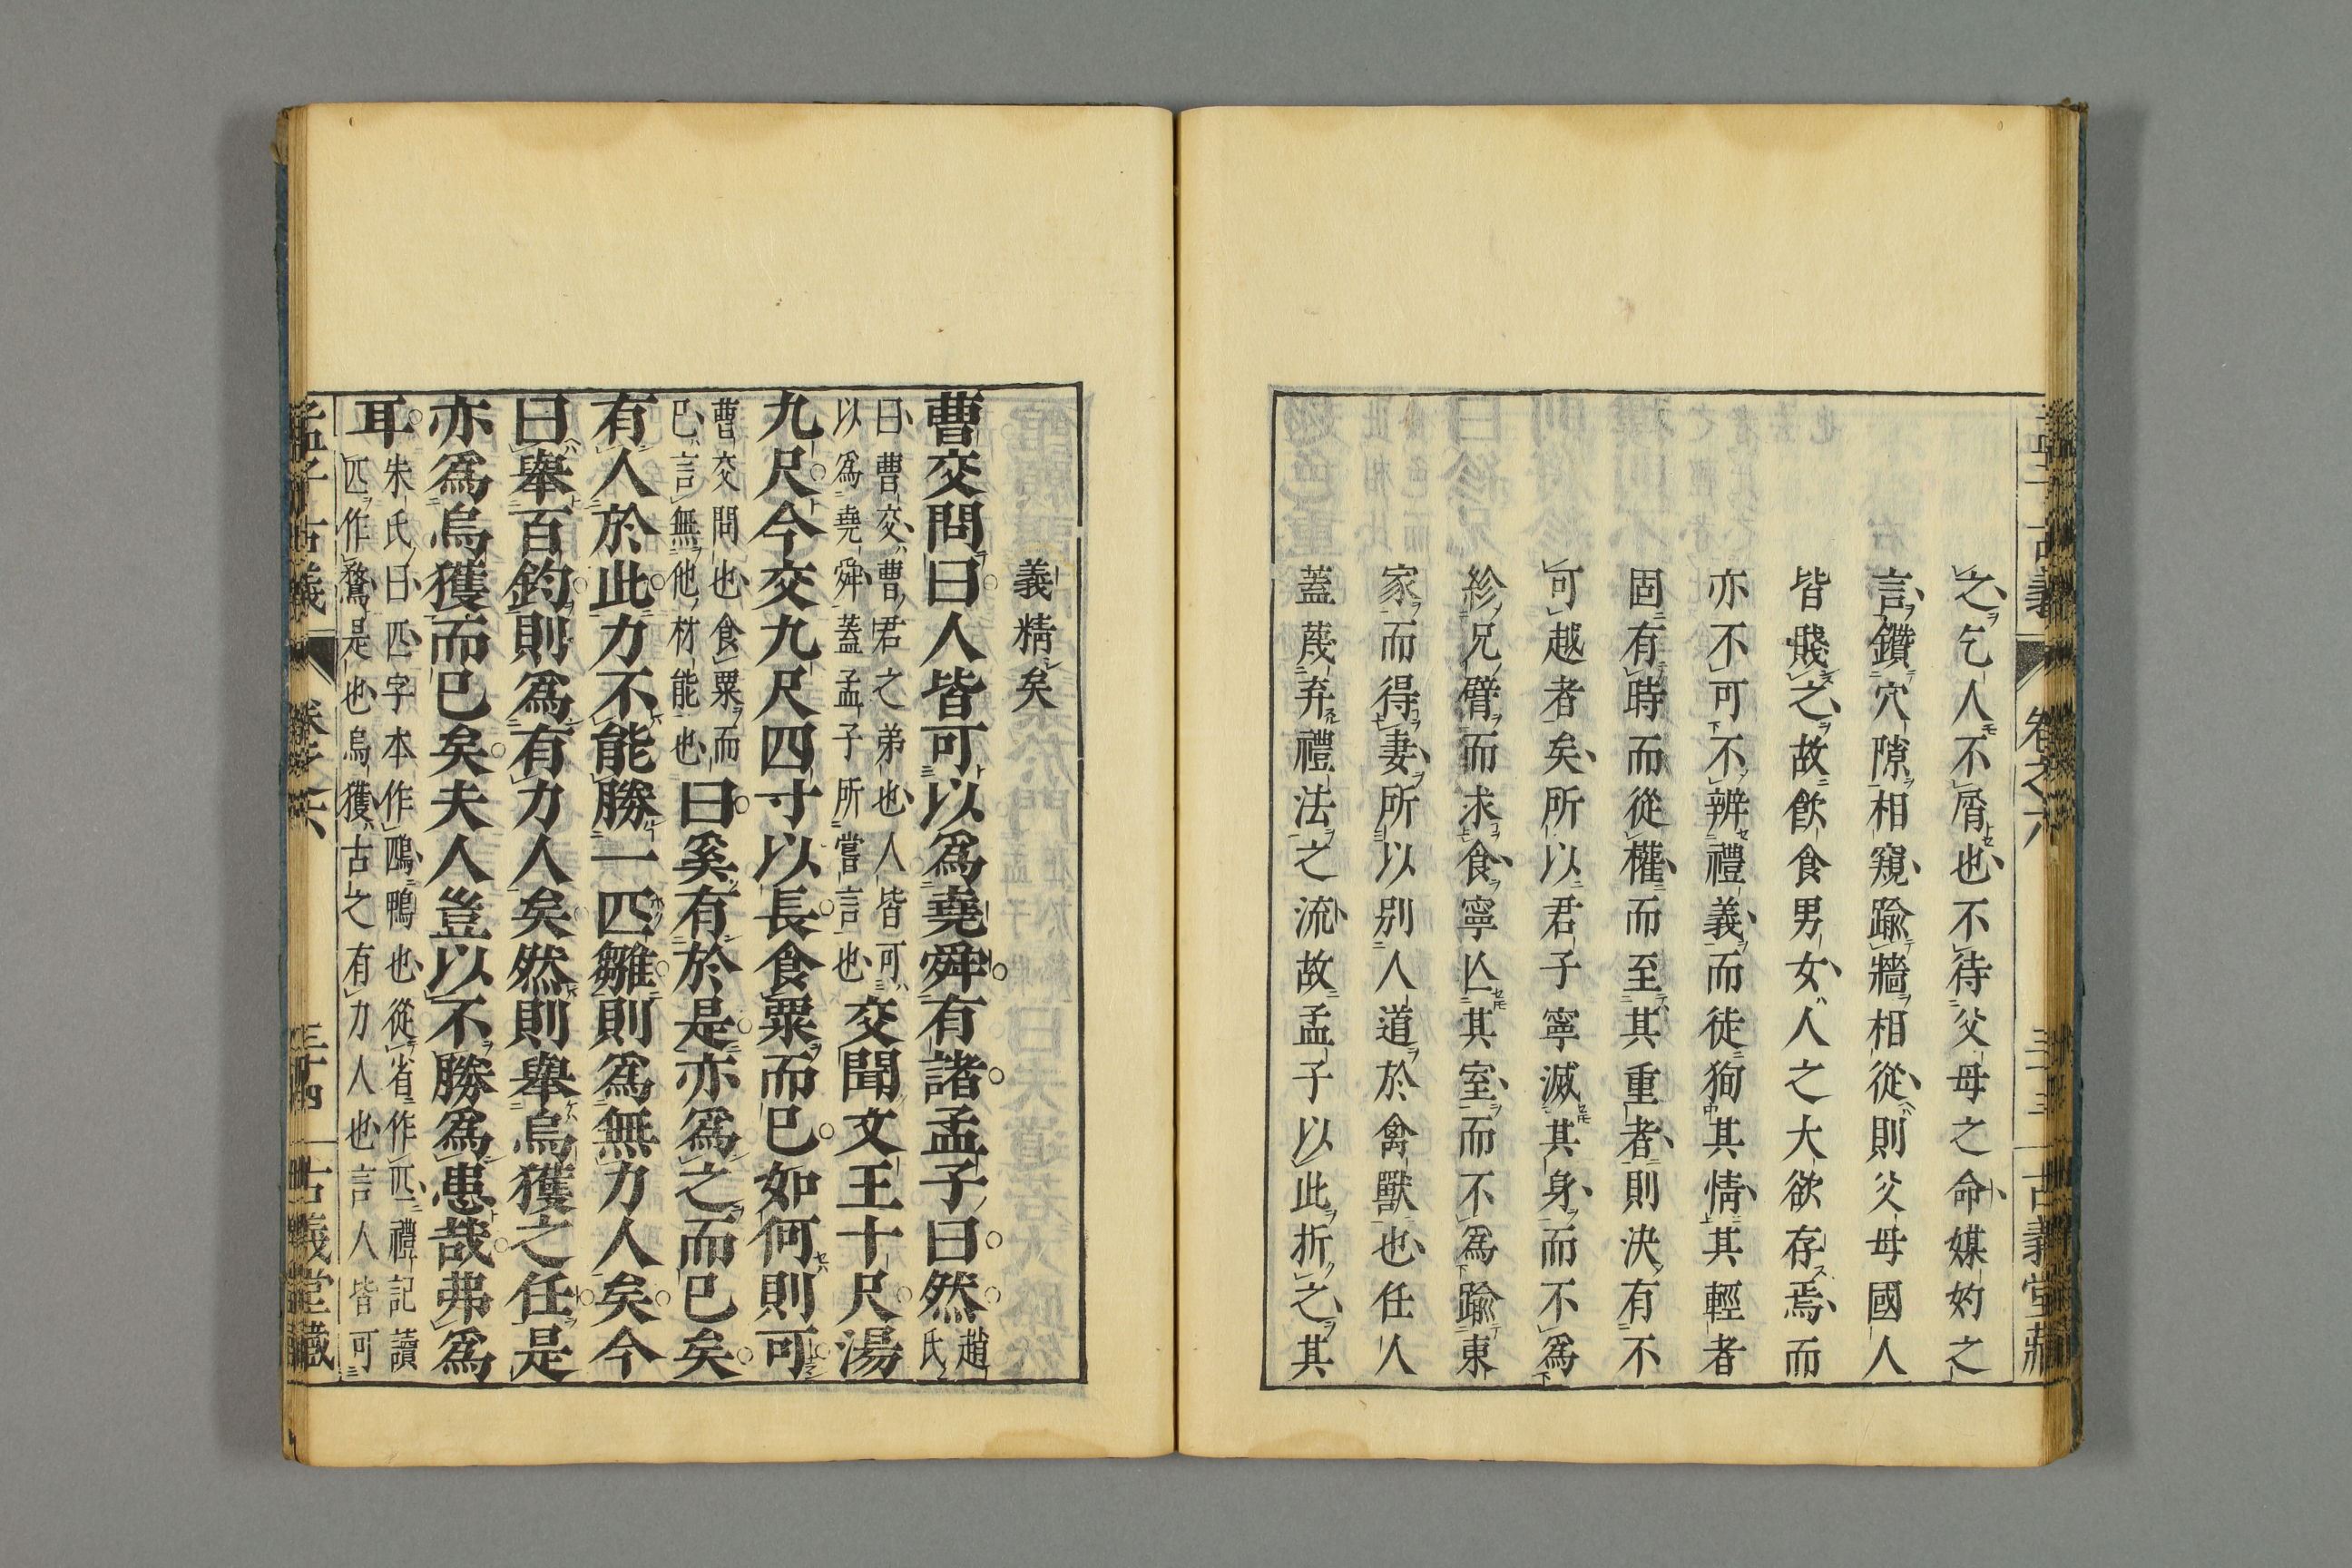 孟子古義 卷之六 三十三 古義堂藏
之乞人不屑也不待父母之命媒妁之
言鑽穴隙相窺踰牆相從則父母國人
皆賤之故飲食男女人之大欲存焉而
亦不可不辨禮義而徒狥其情其輕者
固有時而從權而至其重者則決有不
可越者矣所以君子寧滅其身而不爲
紾兄臂而求食寧亾其室而不爲踰東
家而得妻所以別人道於禽獸也任人
蓋蔑弃禮法之流故孟子以此折之其
義精矣
曹交問曰人皆可以爲堯舜有諸孟子曰然趙氏
曰曹交曹君之弟也人皆可
以爲堯舜蓋孟子所嘗言也交聞文王十尺湯
九尺今交九尺四寸以長食粟而已如何則可
曹交問也食粟而
已言無他材能也曰奚有於是亦爲之而已矣
有人於此力不能勝一匹雛則爲無力人矣今
曰舉百鈞則爲有力人矣然則舉烏獲之任是
亦爲烏獲而已矣夫人豈以不勝爲患哉弗爲
耳朱氏曰匹字本作鴄鴨也從省作匹禮記讀
匹作鶩是也烏獲古之有力人也言人皆可
孟子古義 卷之六 三十四 古義堂藏